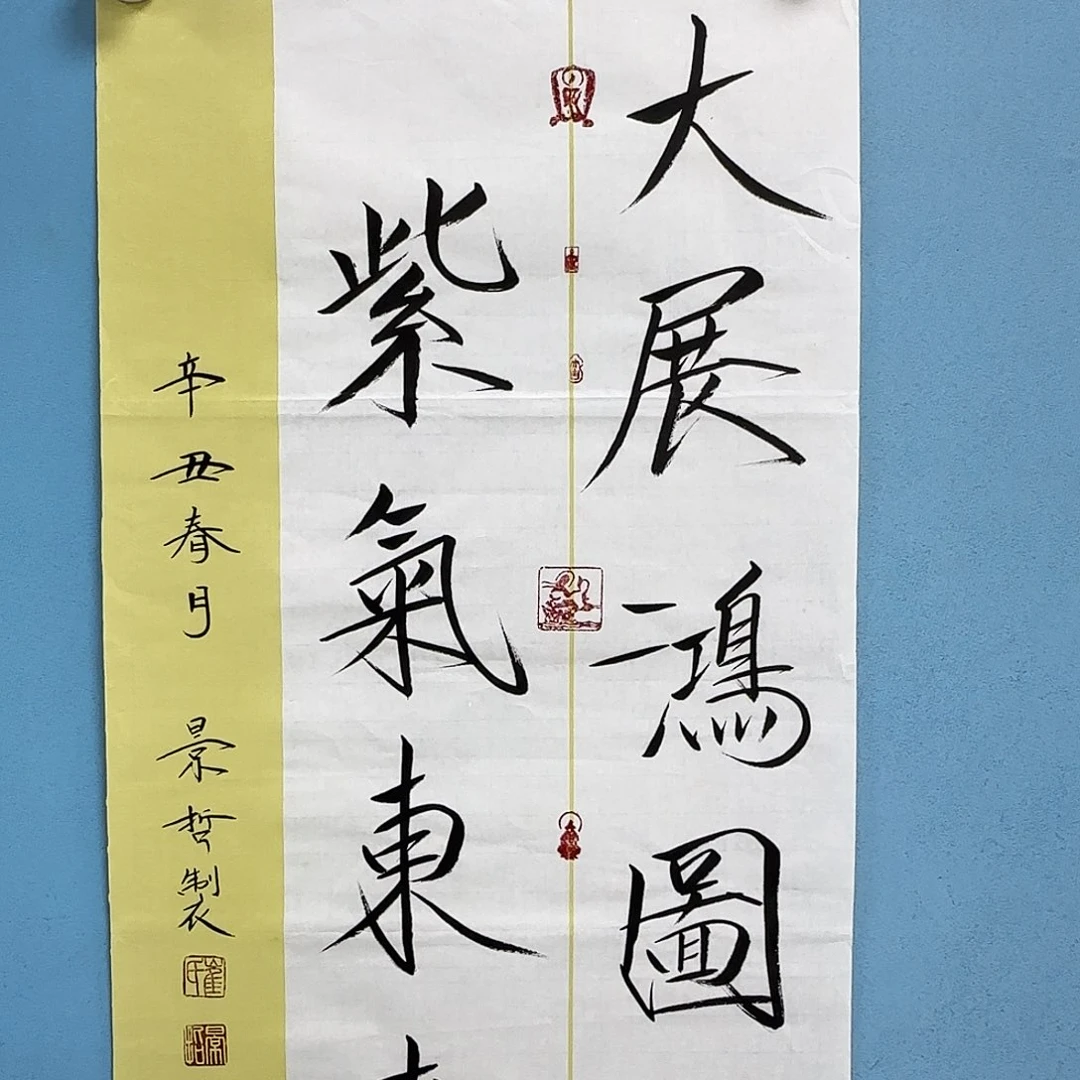 大展鴻圖
紫氣東
辛丑春月 景哲製